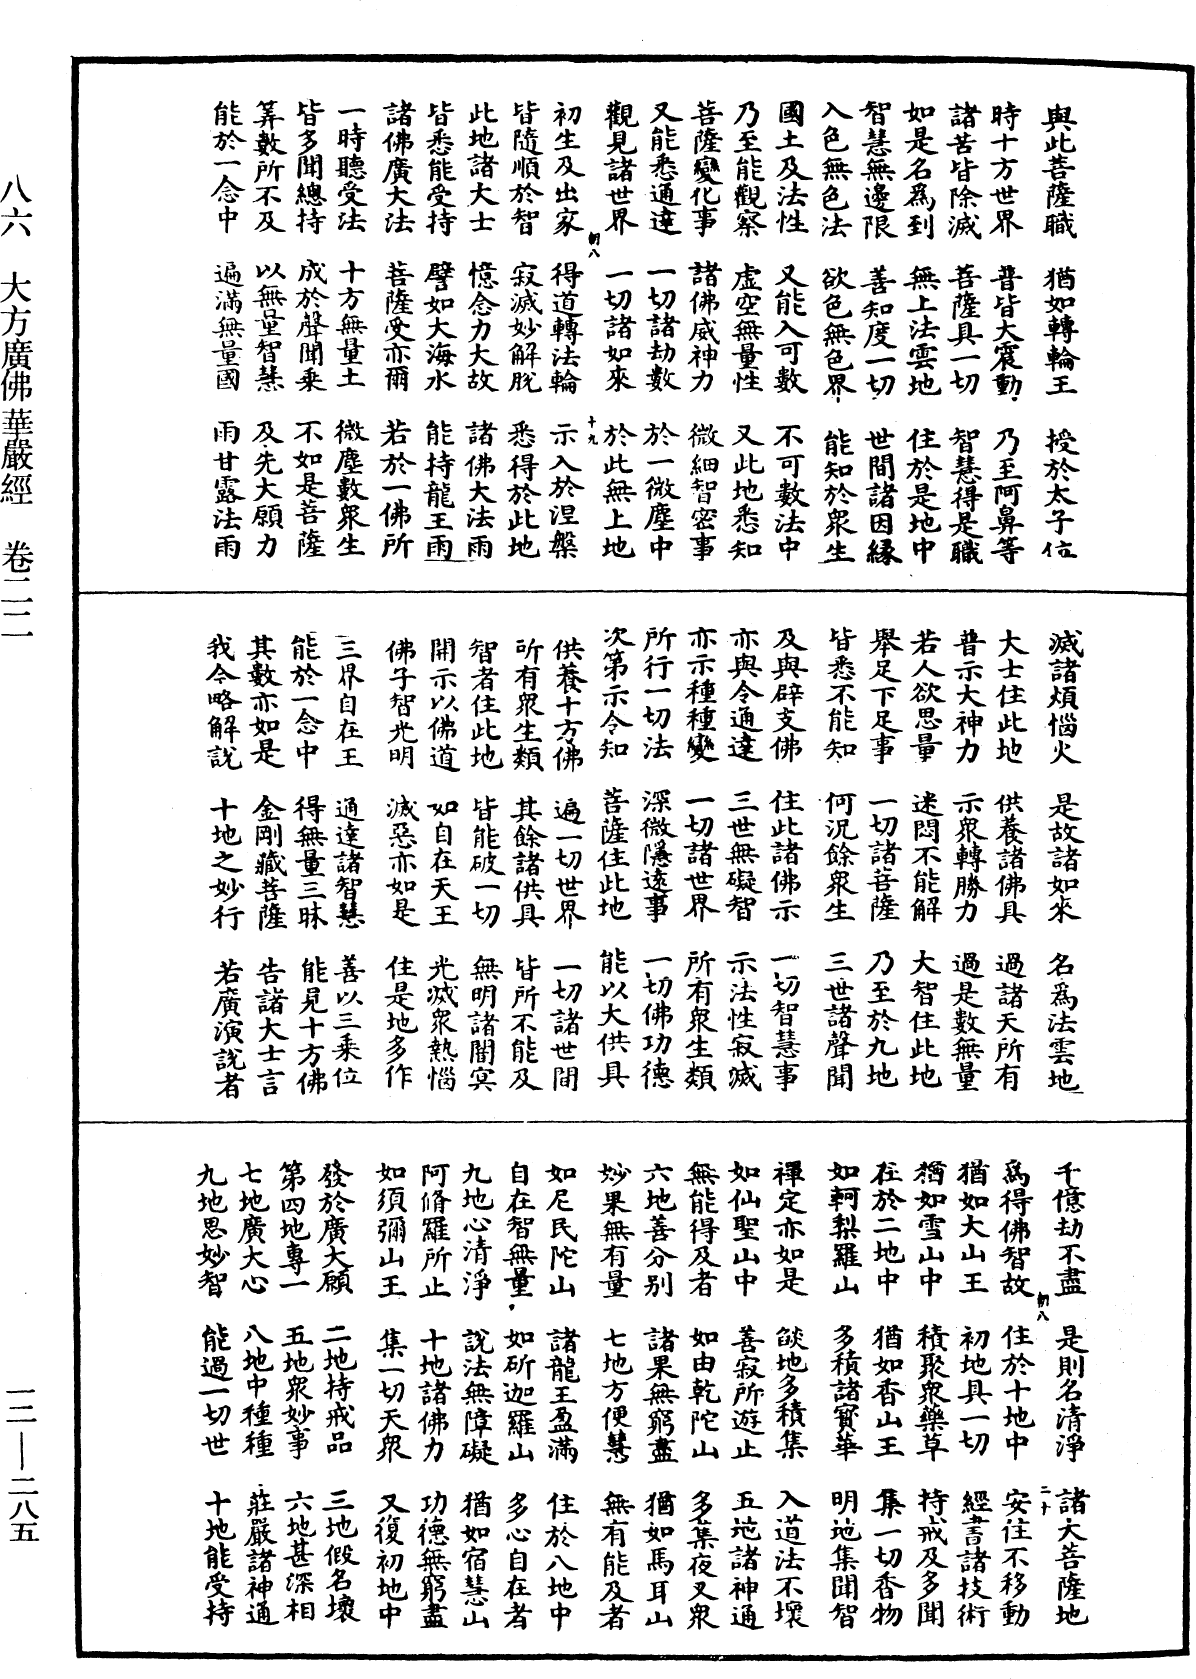 與此菩薩職　猶如轉輪王　授於太子位
時十方世界　普皆大震動　乃至阿鼻等
諸苦皆除滅　菩薩具一切　智慧得是職
如是名爲到　無上法雲地　住於是地中
智慧無邊限　善知度一切　世間諸因緣
入色無色法　欲色無色界　能知於衆生
國土及法性　又能入可數　不可數法中
乃至能觀察　虛空無量性　又此地悉知
菩薩變化事　諸佛威神力　微細智密事
又能悉通達　一切諸劫數　於一微塵中
觀見諸世界　一切諸如來　於此無上地
朝八　十九
初生及出家　得道轉法輪　示入於涅槃
皆隨順於智　寂滅妙解脫　悉得於此地
此地諸大士　憶念力大故　諸佛大法雨
皆悉能受持　譬如大海水　能持龍王雨
諸佛廣大法　菩薩受亦爾　若於一佛所
一時聽受法　十方無量土　微塵數衆生
皆多聞總持　成於聲聞乘　不如是菩薩
筭數所不及　以無量智慧　及先大願力
能於一念中　遍滿無量國　雨甘露法雨
滅諸煩惱火　是故諸如來　名爲法雲地
大士住此地　供養諸佛具　過諸天所有
普示大神力　示衆轉勝力　過是數無量
若人欲思量　迷悶不能解　大智住此地
舉足下足事　一切諸菩薩　乃至於九地
皆悉不能知　何況餘衆生　三世諸聲聞
及與辟支佛　住此諸佛示　一切智慧事
亦與令通達　三世無礙智　示法性寂滅
亦示種種變　一切諸世界　所有衆生類
所行一切法　深微隱遠事　一切佛功德
次第示令知　菩薩住此地　能以大供具
供養十方佛　遍一切世界　一切諸世間
所有衆生類　其餘諸供具　皆所不能及
智者住此地　皆能破一切　無明諸闇冥
開示以佛道　如自在天王　光滅衆熱惱
佛子智光明　滅惡亦如是　住是地多作
三界自在王　通達諸智慧　善以三乘位
能於一念中　得無量三昧　能見十方佛
其數亦如是　金剛藏菩薩　告諸大士言
我今略解說　十地之妙行　若廣演說者
千億劫不盡　是則名清淨　諸大菩薩地
朝八　二十
爲得佛智故　住於十地中　安住不移動
猶如大山王　初地具一切　經書諸技術
猶如雪山中　積聚衆藥草　持戒及多聞
在於二地中　猶如香山王　集一切香物
如軻梨羅山　多積諸寶華　明地集聞智
禪定亦如是　燄地多積集　入道法不壞
如仙聖山中　善寂所遊止　五地諸神通
無能得及者　如由乾陀山　多集夜叉衆
六地善分別　諸果無窮盡　猶如馬耳山
妙果無有量　七地方便慧　無有能及者
如尼民陀山　諸龍王盈滿　住於八地中
自在智無量　如斫迦羅山　多心自在者
九地心清淨　說法無障礙　猶如宿慧山
阿脩羅所止　十地諸佛力　功德無窮盡
如須彌山王　集一切天衆　又復初地中
發於廣大願　二地持戒品　三地假名壞
第四地專一　五地衆妙事　六地甚深相
七地廣大心　八地中種種　莊嚴諸神通
九地思妙智　能過一切世　十地能受持
八六　大方廣佛華嚴經　卷二二　一二—二八五